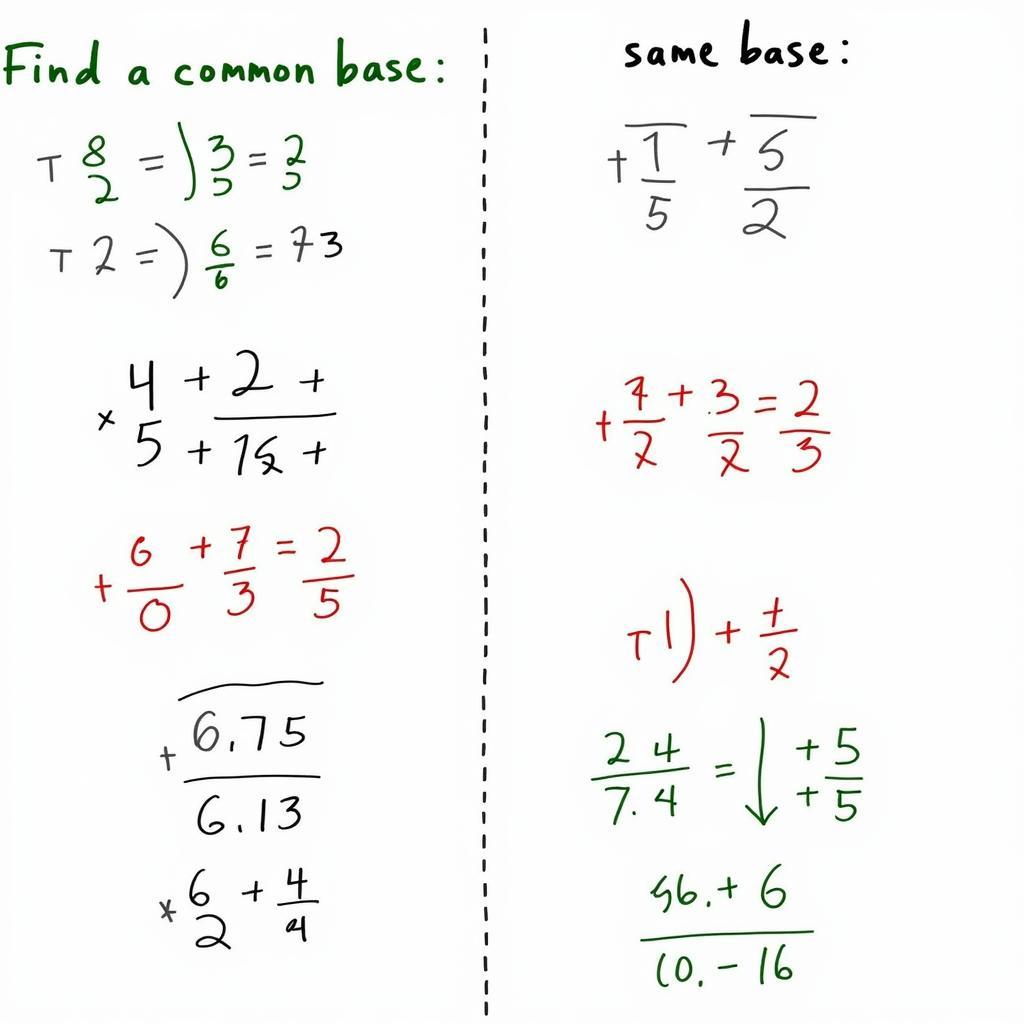 Find a common base:
T 8/2 = ) 3/5 = 2/5
T 2 = ) 6/6 = 73
× 4 + 2 +
5 + 15 +
+ 6/0 + 7/3 = 2/5
+ 6.75
6.13
* 6/2 + 4/4
same base:
+ 1/5 + 5/2
+ 7/2 + 3/2 = 2/3
T 1) + +/2
2 4 / 7.4 = ↓ + 5 / + 5
56.+ 6
10.- 16